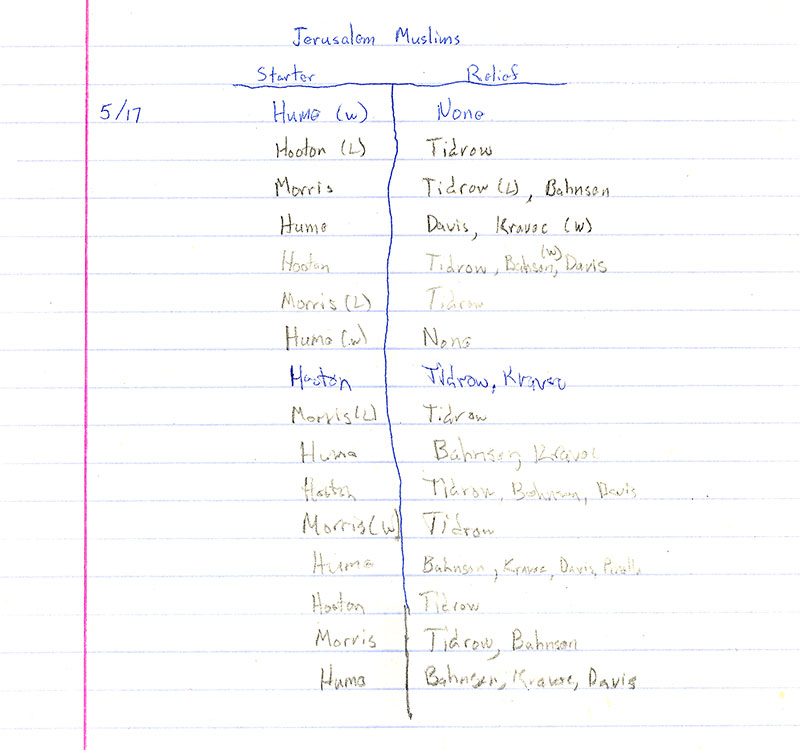 Jerusalem Muslims
Starter Relief
5/17 Hume (W) None
Hooton (L) Tidrow
Morris Tidrow (L), Bahnsen
Hume Davis, Kravec (W)
Hooton Tidrow, Bahson, (W) Davis
Morris (L) Tidrow
Hume (W) None
Hooton Tidrow, Kravec
Morris (L) Tidrow
Hume Bahnsen, Kravec
Hooton Tidrow, Bahnsen, Davis
Morris (W) Tidrow
Hume Bahnsen, Kravec, Davis,
Hooton Tidrow
Morris Tidrow, Bahnsen
Hume Bahnsen, Kravec, Davis